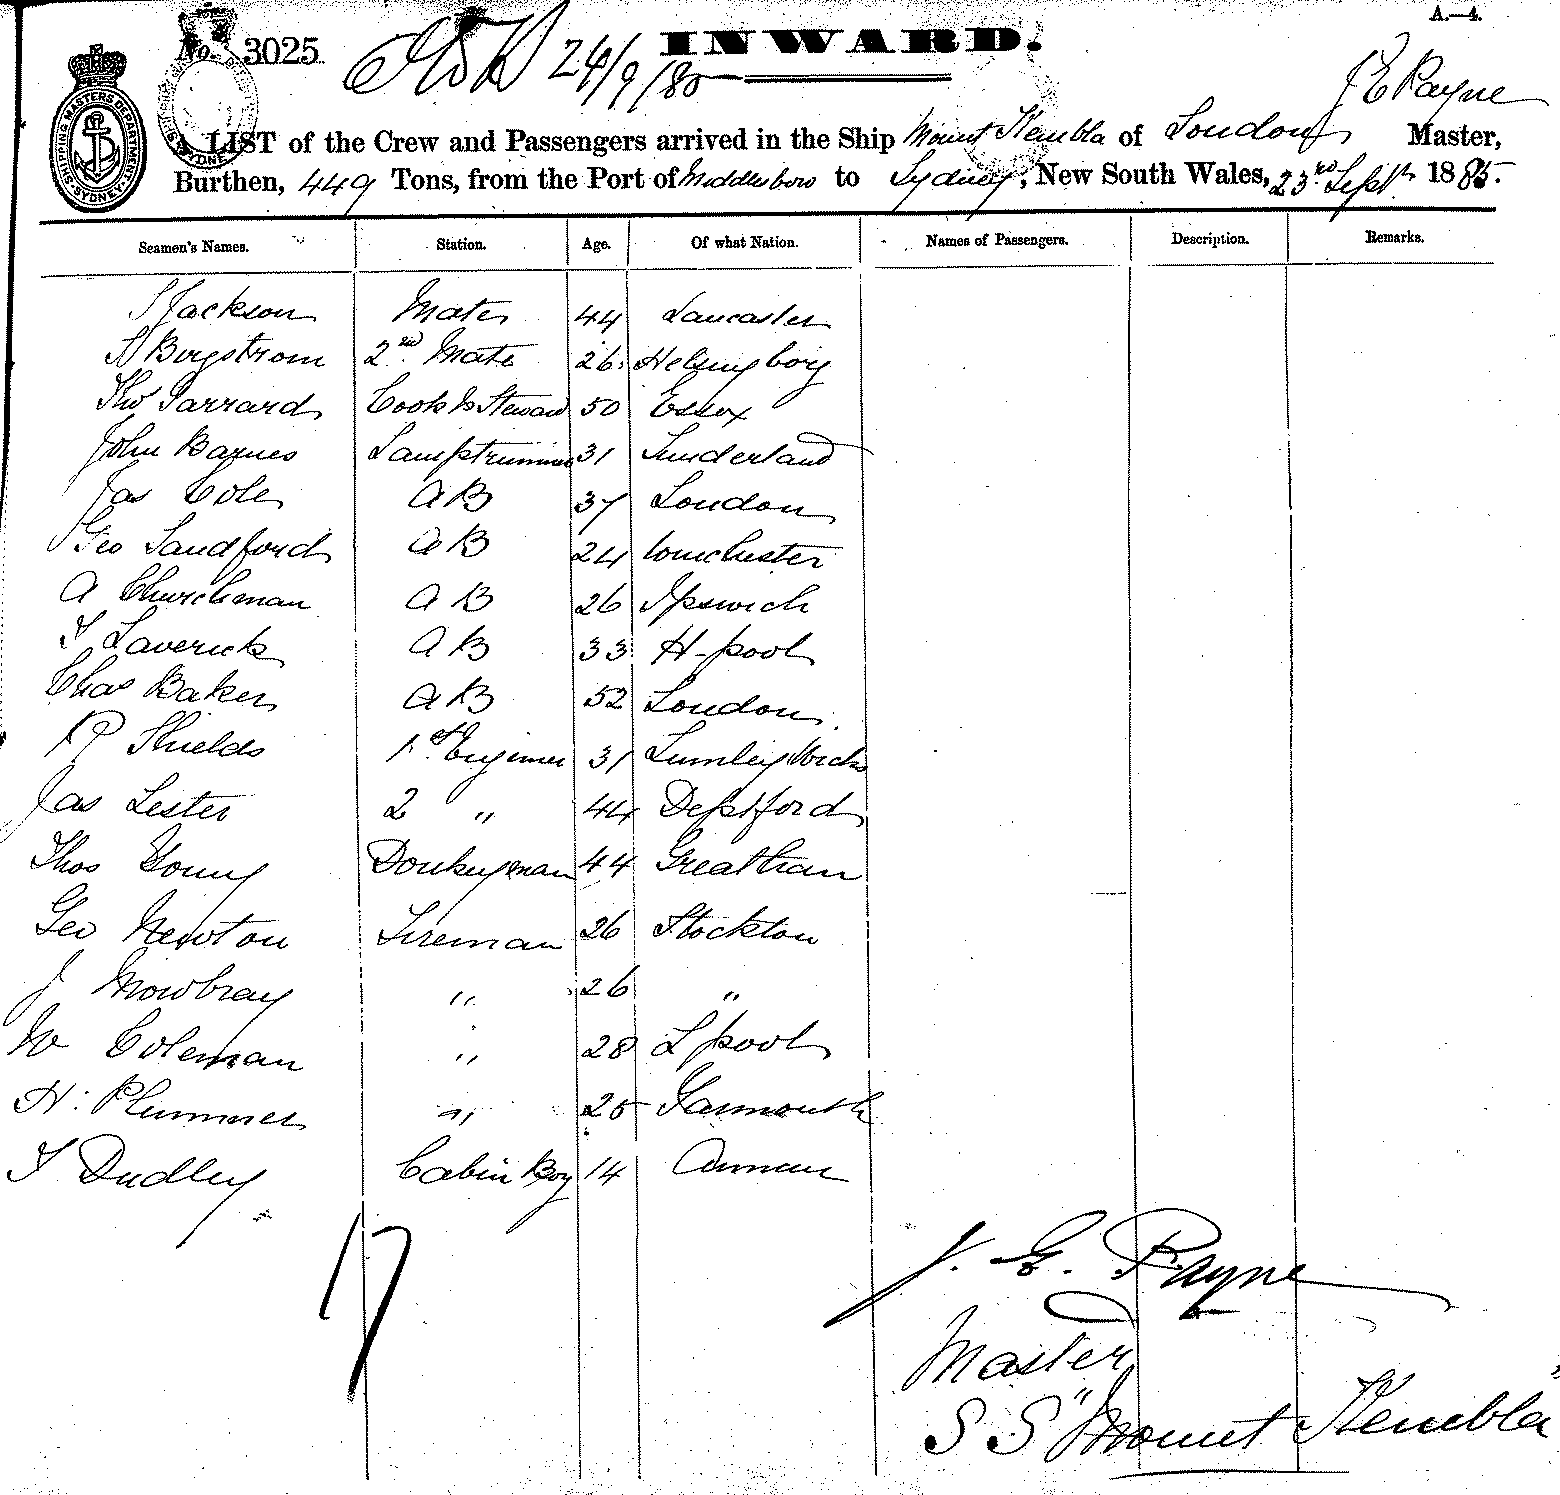 A.—4.
No. 3025
24/9/85
INWARD.
J E Payne
A LIST of the Crew and Passengers arrived in the Ship Mount Kembla of London Master,
Burthen, 449 Tons, from the Port of Middlesboro to Sydney, New South Wales, 23rd Septr 1885.
SHIPPING MASTERS DEPARTMENT SYDNEY
Seamen's Names. Station. Age. Of what Nation. Names of Passengers. Description. Remarks.
S Jackson Mate 44 Lancaster
A Bergstrom 2nd Mate 26 Helsingborg
Thos Jarrard Cook & Steward 50 Essex
John Barnes Lamptrimmer 31 Sunderland
Jas Cole AB 37 London
Geo Sandford AB 24 Winchester
A Churchman AB 26 Ipswich
T Laverick AB 33 H-pool
Chas Baker AB 52 London
R Shields 1st Engineer 31 Lumley
Jas Lester 2 " 44 Deptford
Thos Young Donkeyman 44 Greatham
Geo Newton Fireman 26 Stockton
J Mowbray " 26 "
W Coleman " 28 Lpool
H. Plummer " 25 Yarmouth
T Dudley Cabin Boy 14 Annan
17
J. E. Payne
Master
S S "Mount Kembla"